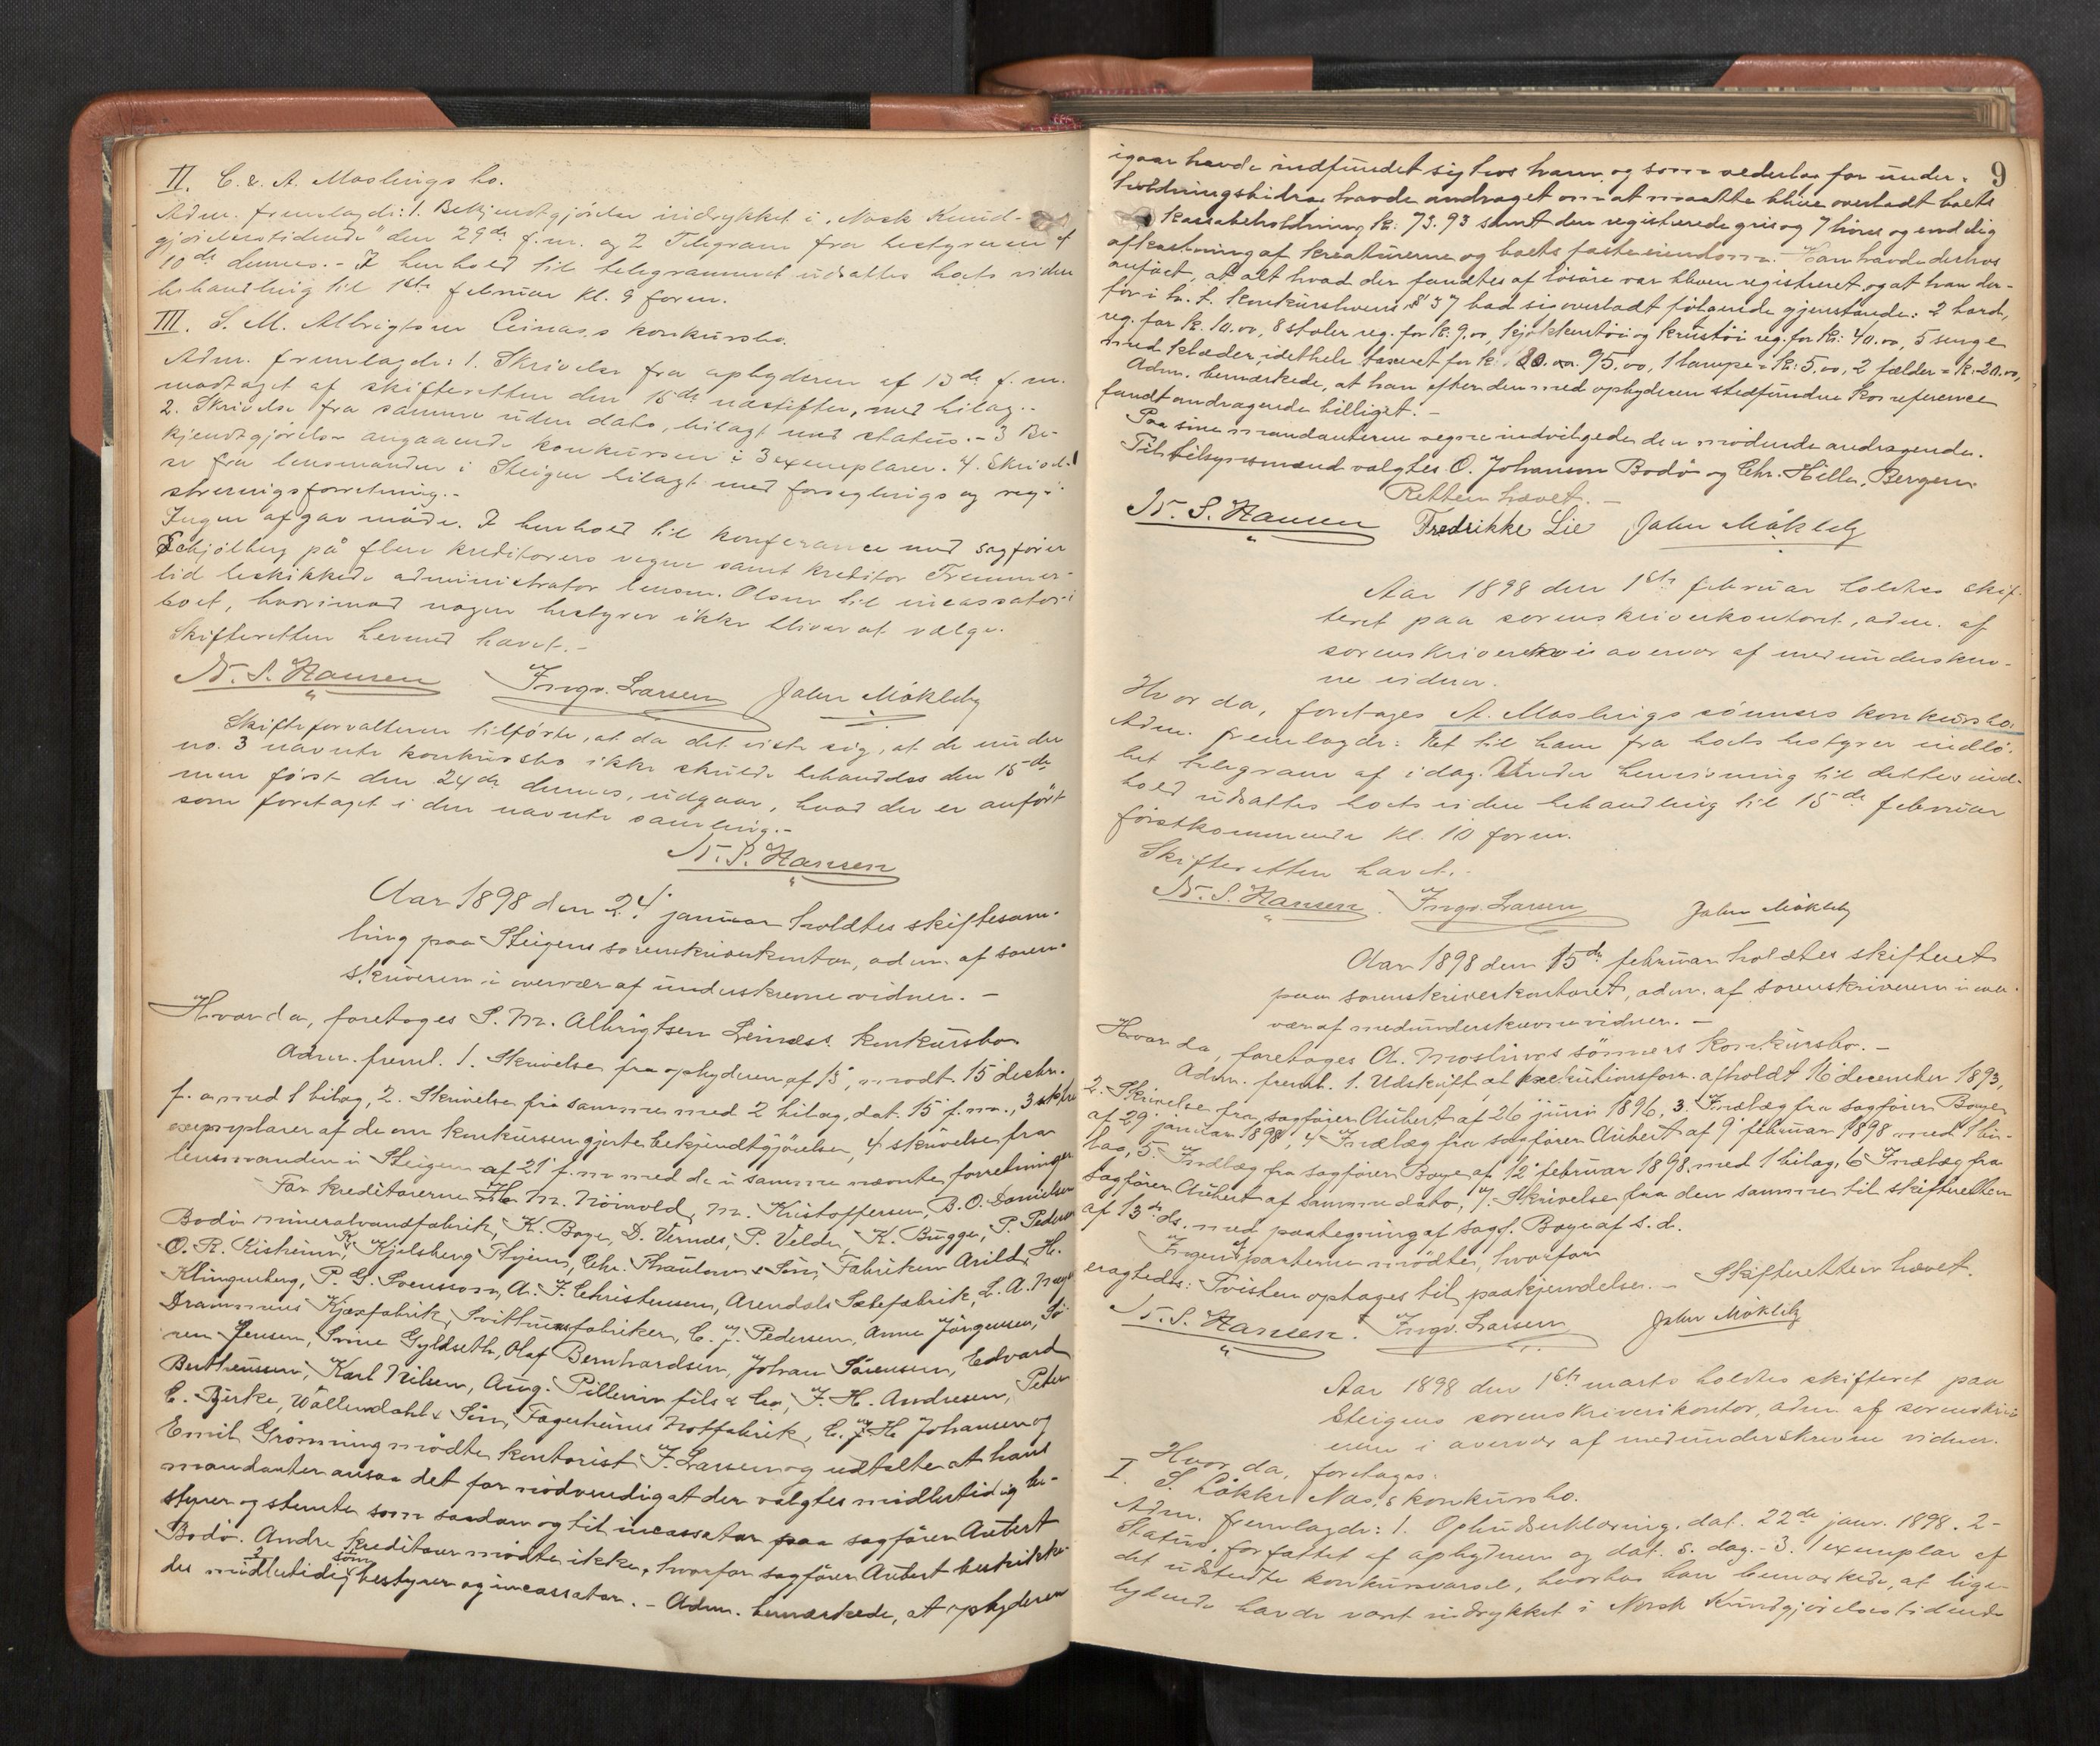 II. C. & A. Maslings bo.
Adm. fremlagde: 1. Bekjendtgjörelse indrykket i "Norsk Kund-
gjörelsestidende" den 29de f.m. og 2 Telegram fra bestyreren af
10de dennes. - I henhold til telegrammet udsattes boets videre
behandling til 1ste februar kl. 9 form.
III. S. M. Albrigtsen Leinæs's konkursbo.
Adm. fremlagde: 1. Skrivelse fra opbyderen af 13de f. m.
modtaget af skifteretten den 15de næstefter, med bilag. -
2. Skrivelse fra samme uden dato, bilagt med status. - 3 Be-
kjendtgjörelse angaaende konkursen i 3 exemplarer. 4. Skrivel-
se fra lensmanden i Steigen bilagt med forseglings og regi-
streringsforretning. -
Ingen afgav möde. I henhold til konferance med sagförer
Schjölberg på flere kreditorers vegne samt kreditor Fremmer-
lid beskikkede administrator lensm. Olsen til incassator i
boet, hvorimod nogen bestyrer ikke bliver at vælge.
Skifteretten hermed hævet. -
N. S. Hansen Ingv. Larsen John Mökleby
Skifteforvalteren tilförte, at da det viste sig, at de under
no. 3 nævnte konkursbo ikke skulde behandles den 15de
men först den 24de dennes, udgaar, hvad der er anfört
som foretaget i den nævnte samling. -
N. S. Hansen
Aar 1898 den 24' januar holdtes skiftesam-
ling paa Steigens sorenskriverkontor, adm. af soren-
skriveren i overvær af underskrevne vidner. -
Hvor da, foretoges S. M. Albrigtsen Leinæs's konkursbo
Adm. freml. 1. Skrivelse fra opbyderen af 13', modt. 15 decbr.
f. a. med 1 bilag, 2. Skrivelse fra samme med 2 bilag, dat. 15' f. m., 3 stkr
exemplarer af de om konkursen gjorte bekjendtgjörelser, 4 skrivelse fra
lensmanden i Steigen af 21' f. m. med de i samme nævnte forretninger
For kreditorerne H. M. Nöisvold, M. Kristoffersen, B. O. Danielsen
Bodö mineralvandfabrik, K. Boye, D. Vernæs, P. Velde, K. Bugge, P. Pedersen
O. R. Kiskinn, Kr. Kjelsberg Thjem, Chr. Thaulow & Sön, Fabriken Arild, H.
Klingenberg, P. G. Svensson, A. F. Christensen, Arendals Sætefabrik, L. A.
Drammens Kjæxfabrik, fabriker, C. J. Pedersen, Anne Jörgensen, Sö
ren Jensen, Svine Gyldseth, Olaf Bernhardsen, Johan Sörensen, Edvard
Bertheussen, Karl Nilsen, Aug. Pillevin fils & Co, J. H. Andresen, Peter
C. Bjerke, Wallendahl & Sön, Fagerheims Notfabrik, C. J. H. Johansen og
Emil Grönning mödte kontorist I. Larsen og udtalte at hans
mandanter ansaa det for nödvendigt at der valgtes midlertidig be-
styrer og stemte som saadan og til incassator paa sagförer Aubert
Bodö. Andre kreditorer mödte ikke, hvorfor sagförer Aubert beskikke
des som midlertidig bestyrer og incassator. - Adm. bemærkede, at opbyderen
9
igaar havde indfundet sig hos ham og som vederlag for under-
holdningsbidrag havde andraget om at maatte blive overladt boets
kassabeholdning kr. 73.93 samt den registrerede gris og 7 höns og endelig
afkastning af kreaturerne og boets faste eiendom. Han havde derhos
anfört, at alt hvad der fandtes af lösöre var bleven registreret og at han der-
for i h. t. konkurslovens § 37 bad sig overladt fölgende gjenstande: 2 bord,
reg. for kr. 10.00, 8 stoler reg. for kr. 9.00, kjökkentöi og krustöi reg. for kr. 40.00, 5 senge
med klæder, idethele taxeret for kr. 95.00, 1 lampe = kr. 5.00, 2 fælder = kr. 20.00,
Adm. bemærkede, at han efter den med opbyderen stedfundne konference
fandt andragende billiget. -
Paa sine mandanternes vegne indvilgede den mödende andragende.
Til tilsynsmænd valgtes O. Johansen Bodö og Chr. Hille, Bergen.
Retten hævet. -
N. S. Hansen Fredrikke Lie John Mökleby
Aar 1898 den 1ste februar holdtes skif-
teret paa sorenskriverkontoret, adm. af
sorenskriveren i overvær af medunderskrev-
ne vidner.
Hvor da, foretoges A. Maslings sönners konkursbo.
Adm. fremlagde: Et til ham fra boets bestyrer indlö-
bet telegram af idag. Under henvisning til dettes ind-
hold udsattes boets videre behandling til 15de februar
förstkommende kl. 10 form.
Skifteretten hævet. -
N. S. Hansen. Ingv. Larsen John Mökleby
Aar 1898 den 15de februar holdtes skifteret
paa sorenskriverkontoret, adm. af sorenskriveren i over-
vær af medunderskrevne vidner. -
Hvor da, foretoges A. Maslings sönners konkursbo. -
Adm. freml. 1. Udskrift af exekutionsforr. afholdt 16' december 1893,
2. Skrivelse fra sagförer Aubert af 26 juni 1896, 3. Indlæg fra sagförer Boye
af 29' januar 1898, 4 Indlæg fra sagförer Aubert af 9' februar 1898 med 1 bi-
lag, 5. Indlæg fra sagförer Boye af 12' februar 1898 med 1 bilag, 6 Indlæg fra
Sagförer Aubert af samme dato, 7. Skrivelse fra den samme til skifteretten
af 13de ds. med paategning af sagf. Boye af s. d.
Ingen af parterne mödte, hvorfor
eragtedes: Tvisten optages til paakjendelse. - Skifteretten hævet.
N. S. Hansen. Ingv. Larsen John Mökleby
Aar 1898 den 1ste marts holdtes skifteret paa
Steigens sorenskriverikontor, adm. af sorenskriv
eren i overvær af medunderskrevne vidner.
Hvor da, foretoges:
I. S. Lökke Næs's konkursbo.
Adm. fremlagde: 1. Opbudserklæring, dat. 22de janr. 1898. 2-
Status, forfattet af opbyderen og dat. s. dag. - 3. 1 exemplar af
det udstedte konkursvarsel, hvorhos han bemærkede, at lige-
lydende havde været indrykket i Norsk Kundgjörelsestidende